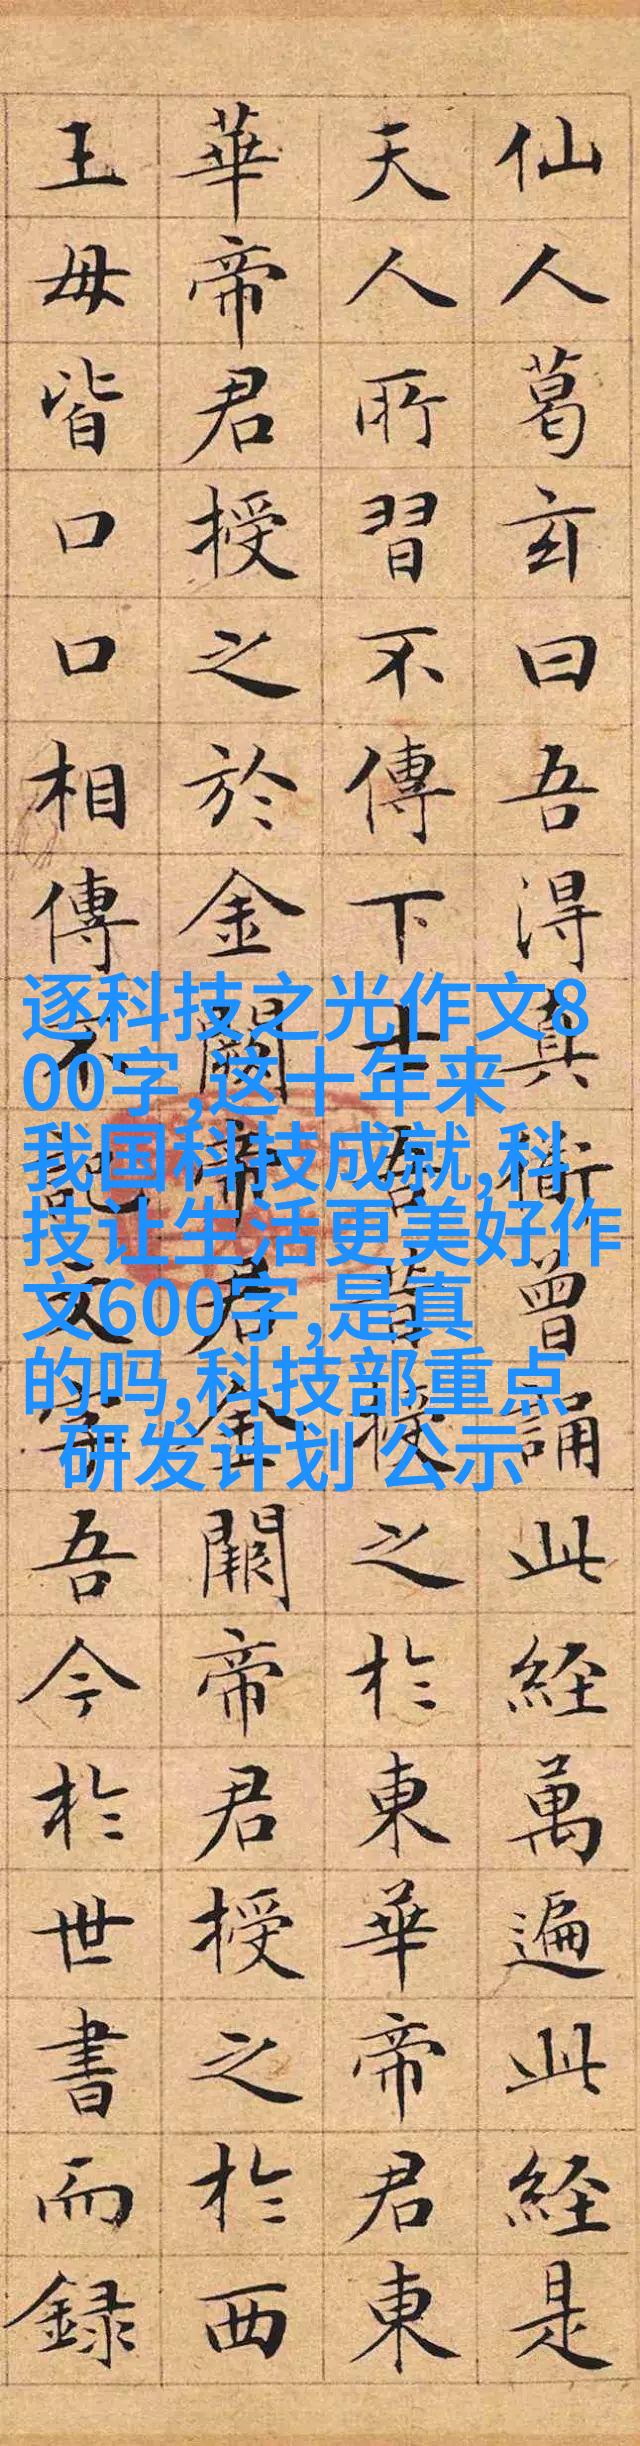 仙人葛玄曰吾淂真衜曾誦此経萬遍此経是
天人所習不傳下士吾昔授之於東華帝君東
華帝君授之於金闕帝君金闕帝君授之於西
王母皆口口相傳不記文字吾今於世書而録
逐科技之光作文8
00字,这十年来
我国科技成就,科
技让生活更美好作
文600字,是真
的吗,科技部重点
研发计划 公示